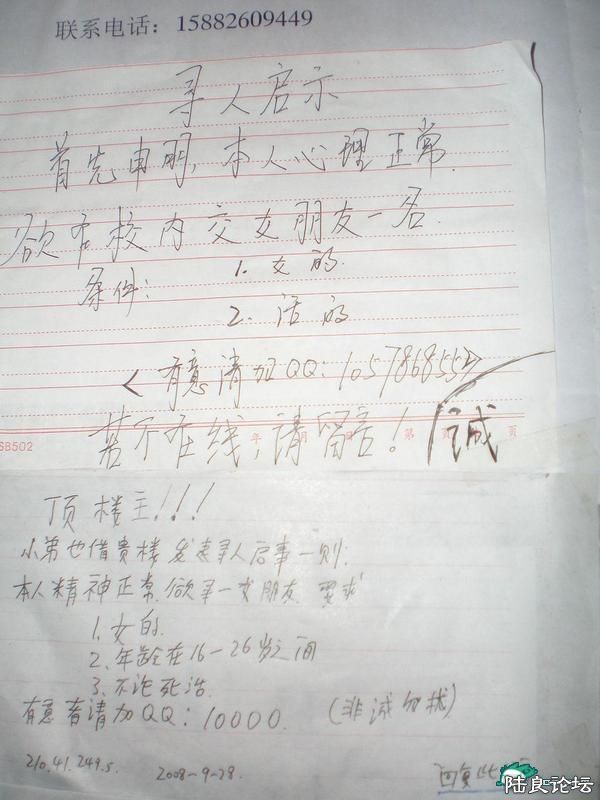 联系电话：15882609449
寻人启示
首先申明，本人心理正常.
欲在校内交女朋友一名.
条件：1. 女的.
2. 活的
<有意请加QQ：105786855>
若不在线，请留言！ 诚
68502 年 月 日 第 页 页
顶楼主！！！
小弟也借贵楼发表寻人启事一则：
本人精神正常.欲寻一女朋友.要求
1. 女的.
2. 年龄在16-26岁之间
3. 不论死活.
有意者请加QQ：10000. (非诚勿扰)
210.41.249.5. 2008-9-28. 回复此
陆良论坛